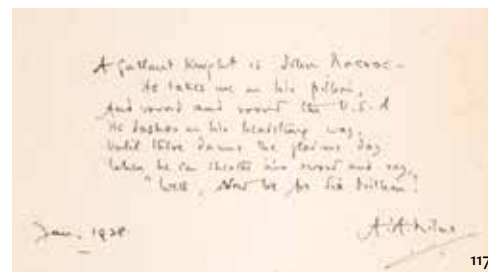 A Gallant Knight is John Macrae –
He takes me on his pillion,
And round and round the U.S.A
He dashes in his headstrong way,
Until there dawns the glorious day
When he can sheathe his sword and say,
"Well, Now we for six million!
Jan. 1928
A.A. Milne
117